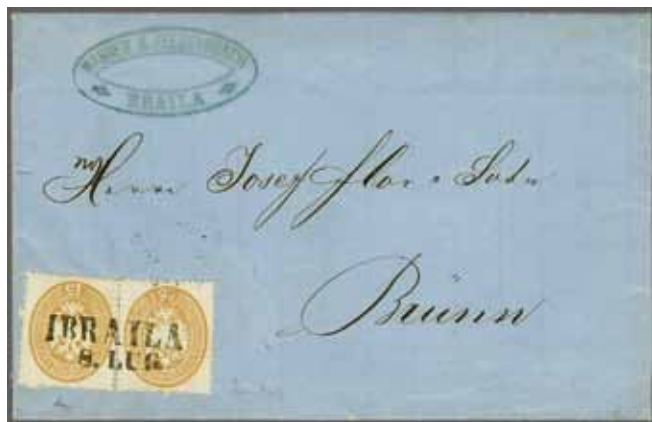 BRAILA
Herrn Josef Flor & Sohn
Brünn
15 15
IBRAILA
8. LUG.